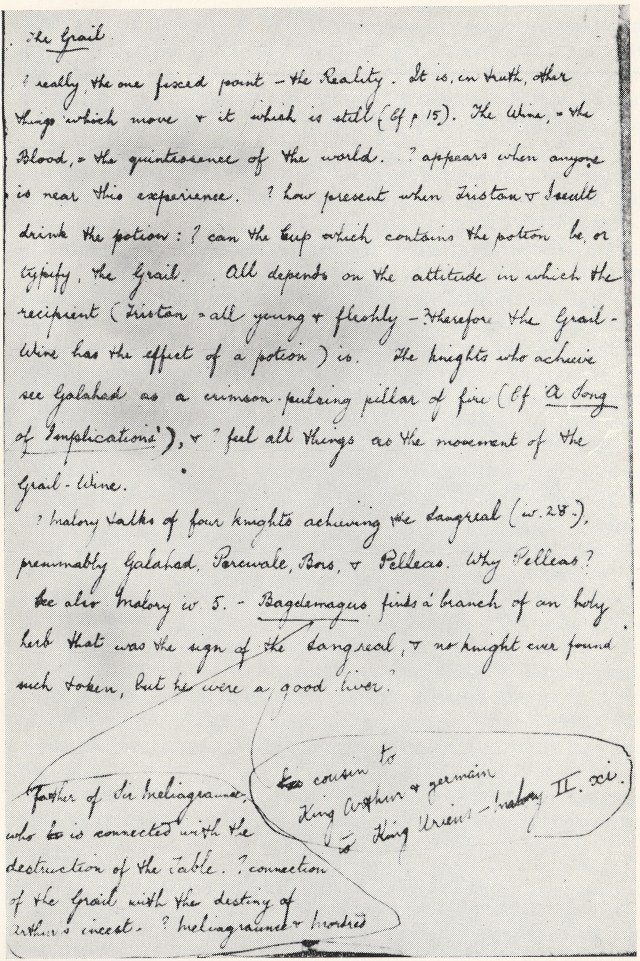 The Grail
? really, the one fixed point – the Reality. It is, in truth, other
things which move & it which is still (Cf p 15). The Wine, = the
Blood, = the quintessence of the world. ? appears when anyone
is near this experience. ? how present when Tristan & Iseult
drink the potion : ? can the Cup which contains the potion be, or
typify, the Grail. All depends on the attitude in which the
recipient (Tristan = all young & fleshly – ? therefore the Grail-
Wine has the effect of a potion) is. The knights who achieve
see Galahad as a crimson-pulsing pillar of fire (Cf. 'A Song
of Implications'), & ? feel all things as the movement of the
Grail-Wine.
? Malory talks of four knights achieving the Sangreal (iv. 28.),
presumably Galahad, Percivale, Bors, & Pelleas. Why Pelleas?
See also Malory iv. 5. – Bagdemagus finds a branch of an holy
herb that was the sign of the Sangreal, & no knight ever found
such token, but he were a good liver.
cousin to
King Arthur & germain
to King Uriens – Malory II. xi.
Father of Sir Meliagraunce,
who is connected with the
destruction of the Table. ? connection
of the Grail with the destiny of
Arthur's incest. ? Meliagraunce & Mordred